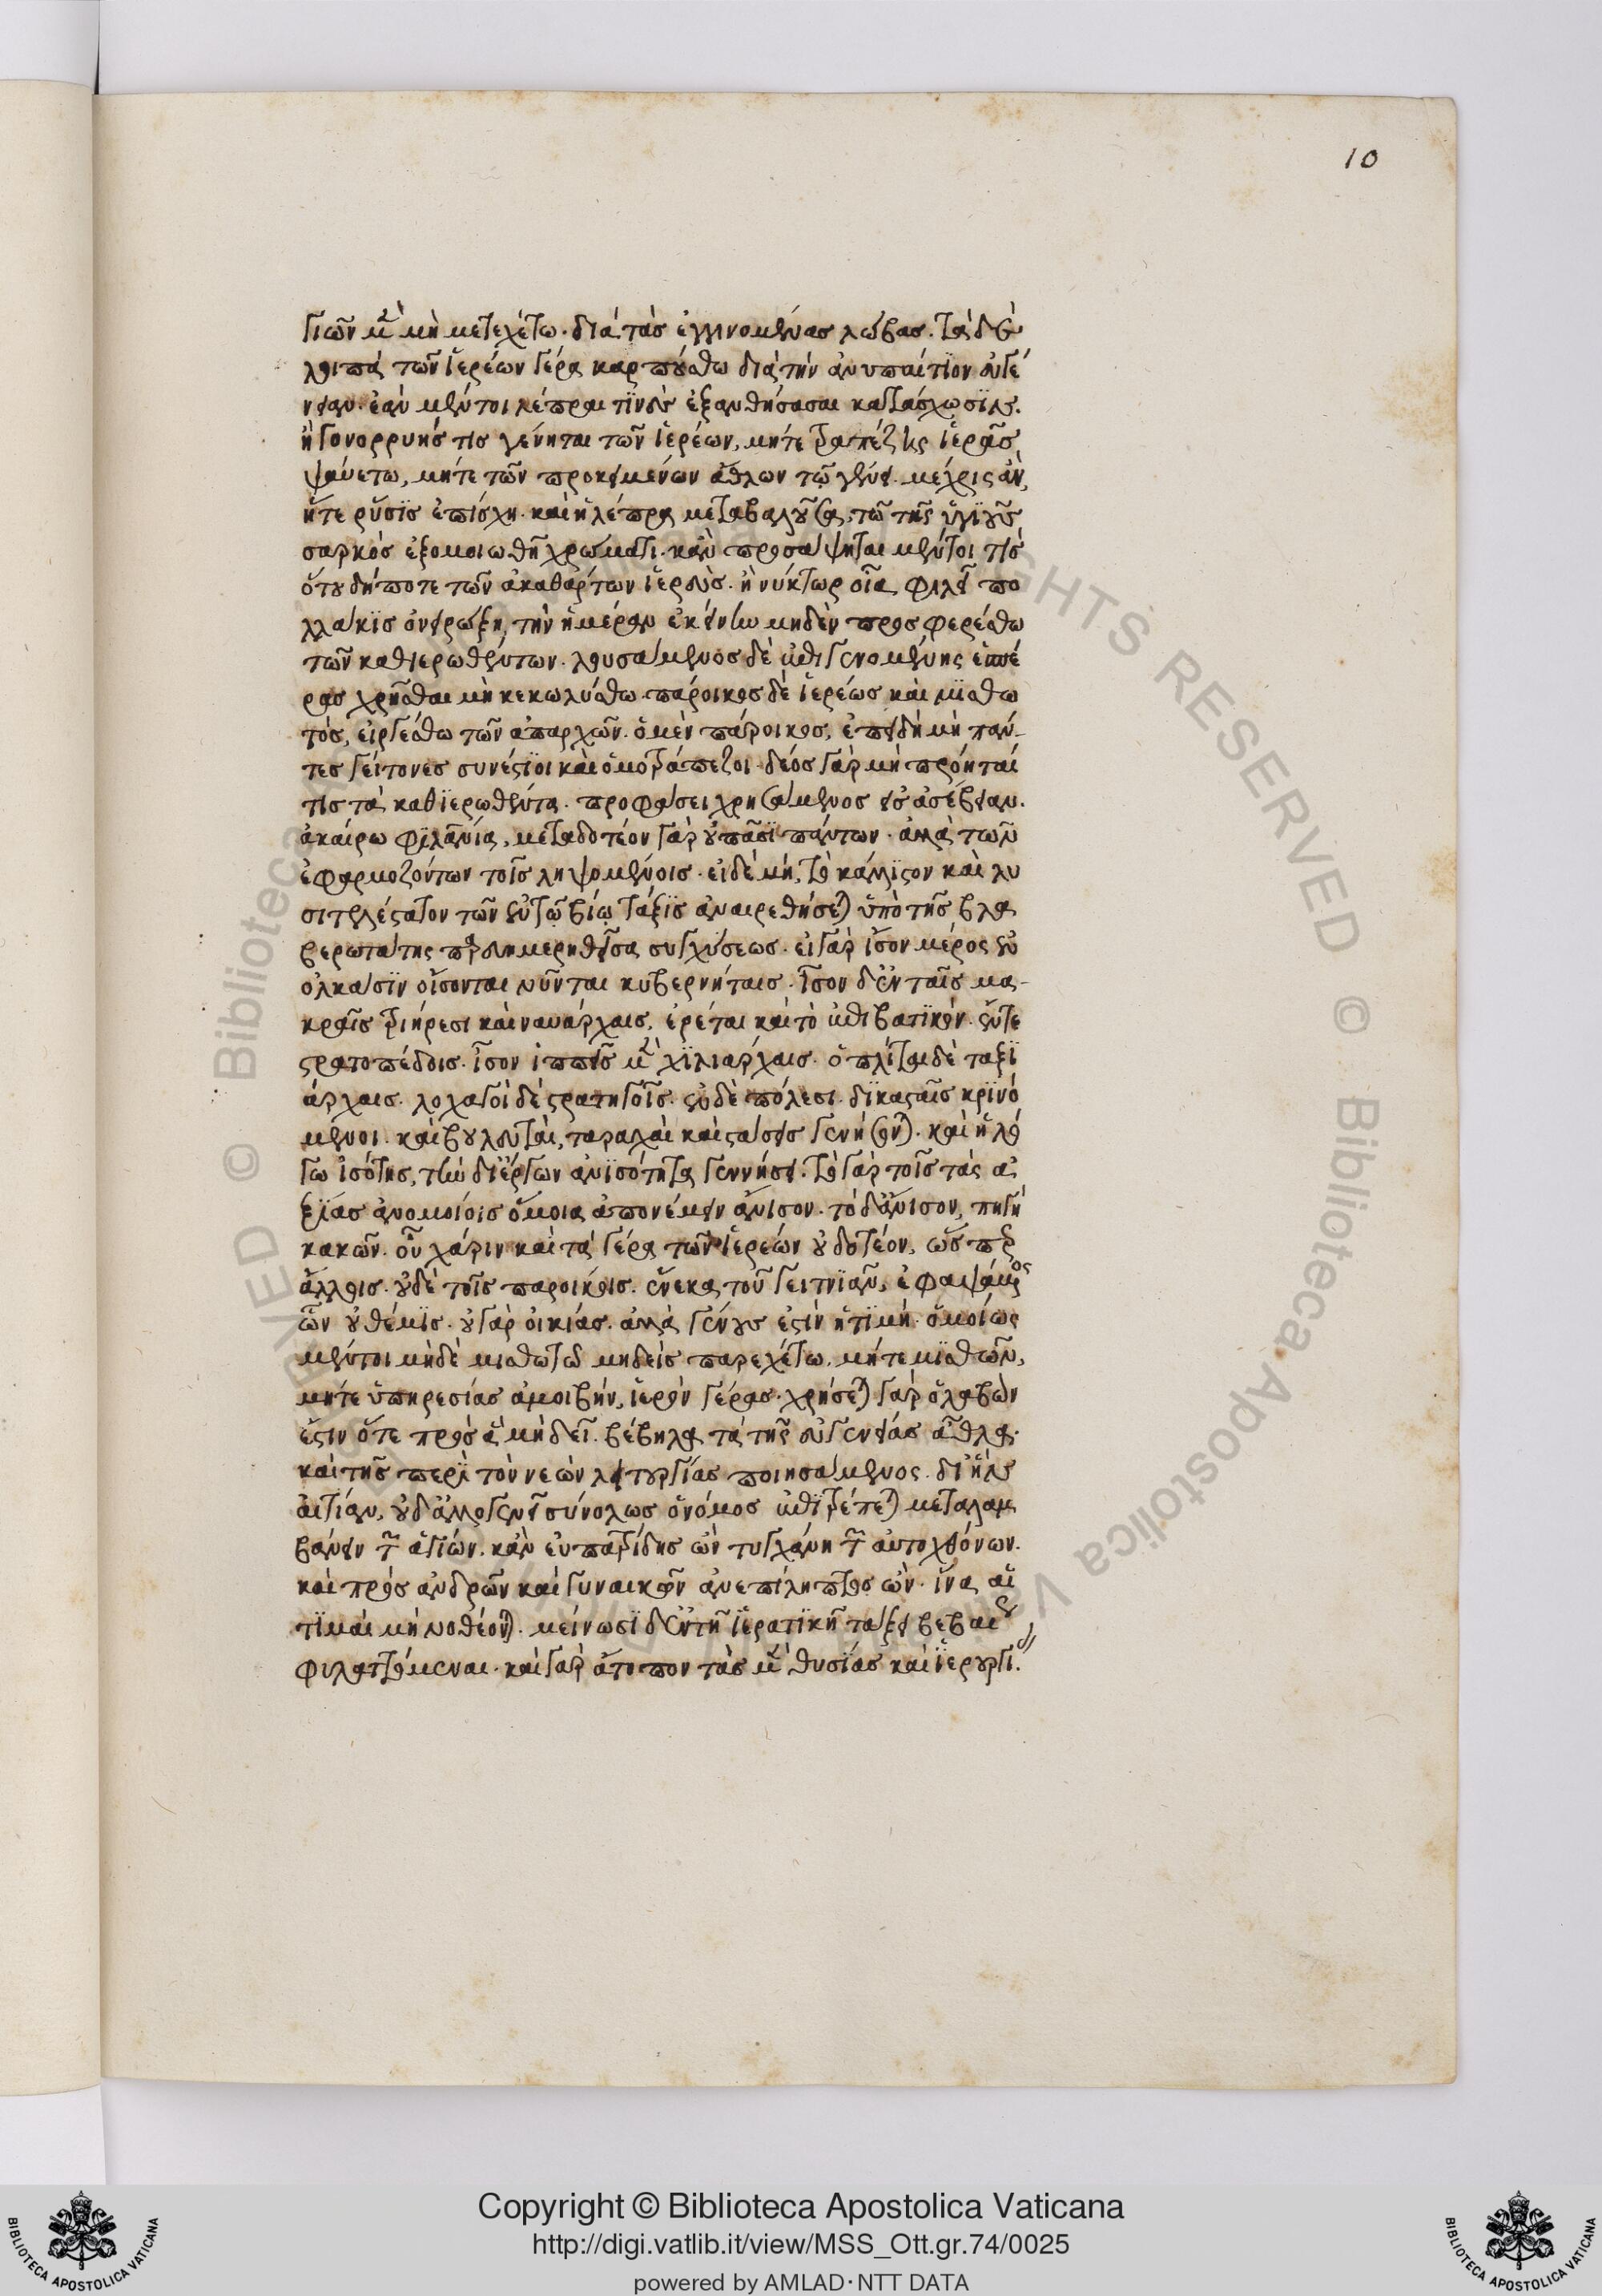 10
γιῶν μὲν μὴ μετεχέτω· διὰ τὰς ἐγγινομένας λώβας· τὰ δὲ
λοιπὰ τῶν ἱερέων γέρα καρπούσθω διὰ τὴν ἀνυπαίτιον εὐγέ
νειαν· ἐὰν μέντοι λέπραι τινὸς ἐξανθήσασαι κατάσχωσιν·
ἢ γονορρυής τις γένηται τῶν ἱερέων, μήτε τραπέζης ἱερᾶς
ψαύετω, μήτε τῶν προκειμένων ἄθλων τῷ γένει· μέχρις ἂν
ἥτε ῥῦσις ἐπίσχη· καὶ ἡ λέπρα μεταβαλοῦσα, τῶ τῆς ὑγιοῦς
σαρκὸς ἐξομοιωθῆ χρώματι· κἂν προσάψηται μέντοι τις
ὁτουδήποτε τῶν ἀκαθάρτων ἱερεὺς· ἢ νύκτωρ οἷα φιλεῖ πο
λλάκις ὀνειρώξη, τὴν ἡμέραν ἐκείνην μηδὲν προσφερέσθω
τῶν καθιερωθέντων· λουσάμενος δὲ ἐπιγενομένης ἑσπέ
ρας χρῆσθαι μὴ κεκωλύσθω· πάροικος δὲ ἱερέως καὶ μισθω
τὸς, εἰργέσθω τῶν ἀπαρχῶν· ὁ μὲν πάροικος, ἐπειδὴ μὴ πάν-
τες γείτονες συνέστιοι καὶ ὁμοτράπεζοι· δέος γὰρ μὴ πρόηταί
τις τὰ καθιερωθέντα· προφάσει χρησάμενος εἰς ἀσέβειαν·
ἀκαίρω φιλανίᾳ, μεταδοτέον γὰρ οὐ πᾶσι πάντων· ἀλλὰ τῶν
ἐφαρμοζόντων τοῖς ληψομένοις· εἰ δὲ μή, τὸ κάλλιστον καὶ λυ
σιτελέστατον τῶν ἐν τῷ βίῳ τάξις ἀναιρεθήσεται ὑπὸ τῆς βλα
βερωτάτης παρευημερηθεῖσα συγχύσεως· εἰ γὰρ ἴσον μέρος ἐν
ὁλκάσιν οἴσονται ναῦται κυβερνήταις· ἴσον δ' ἐν ταῖς μα-
κραῖς τριήρεσι καὶ ναυάρχαις, ἐρέται καὶ τὸ ἐπιβατικὸν· ἔν τε
στρατοπέδοις· ἴσον ἱππεῖς μὲν χιλιάρχαις· ὁπλῖται δὲ ταξι
άρχαις· λοχαγοὶ δὲ στρατηγοῖς· ἐν δὲ πόλεσι· δικασταῖς κρινό
μενοι· καὶ βουλευταὶ, ταραχαὶ καὶ στάσεις γενήσονται· καὶ ἡ λό
γω ἰσότης, τὴν δι' ἔργων ἀνισότητα γεννήσει· τὸ γὰρ τοῖς τὰς ἀ
ξίας ἀνομοίοις ὅμοια ἀπονέμειν ἄνισον· τὸ δ' ἄνισον, πηγὴ
κακῶν· οὗ χάριν καὶ τὰ γέρα τῶν ἱερέων οὐ δοτέον, ὥσπερ
ἄλλοις· οὐδὲ τοῖς παροίκοις· ἕνεκα τοῦ γειτνιᾶν, ἐφαψάμενος
ὧν οὐ θέμις· οὐ γὰρ οἰκίας· ἀλλὰ γένους ἐστὶν ἡ τιμή· ὁμοίως
μέντοι μὴδὲ μισθωτῶ μηδεὶς παρεχέτω, μήτε μισθῶν,
μήτε ὑπηρεσίας ἀμοιβὴν, ἱερὸν γέρας· χρήσεται γὰρ ὁ λαβὼν
ἔστιν ὅτε πρὸς ἃ μὴ δεῖ· βέβηλα τὰ τῆς εὐγενείας ἆθλα·
καὶ τῆς περὶ τὸν νεὼν λειτουργίας ποιησάμενος· δι' ἣν
αἰτίαν, οὐδ' ἀλλογενεῖ συνόλως ὁ νόμος ἐπιτρέπει μεταλαμ
βάνειν τῶν ἁγίων· κἂν εὐπατρίδης ὢν τυγχάνη τῶν αὐτοχθόνων·
καὶ πρὸς ἀνδρῶν καὶ γυναικῶν ἀνεπίληπτος ὢν· ἵνα αἱ
τιμαὶ μὴ νοθεύονται· μείνωσι δ' ἐν τῆ ἱερατικῆ τάξει βεβαίως
φυλαττόμεναι· καὶ γὰρ ἄτοπον τὰς μὲν θυσίας καὶ ἱερουργί
Copyright © Biblioteca Apostolica Vaticana
http://digi.vatlib.it/view/MSS_Ott.gr.74/0025
powered by AMLAD·NTT DATA